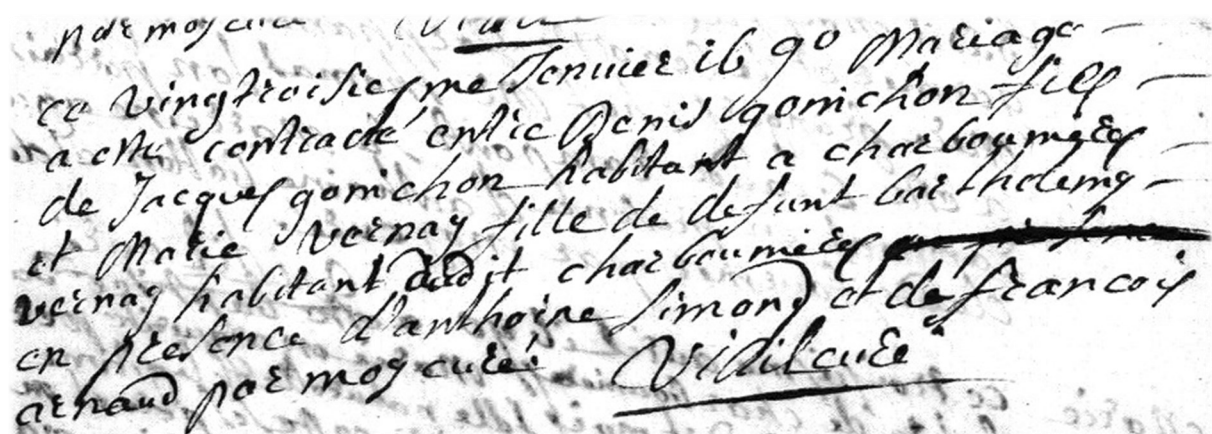 par moy curé Vidil
ce vingtroisiesme Jenvier 16 90 Mariage
a esté contracté entre Denis gonichon fils
de Jacques gonichon habitant a charbounieres
et Marie Vernay fille de defunt barthelemy
vernay habitant audit charbounieres
en presence d'anthoine simond et de francois
arnaud par moy curé Vidil curé